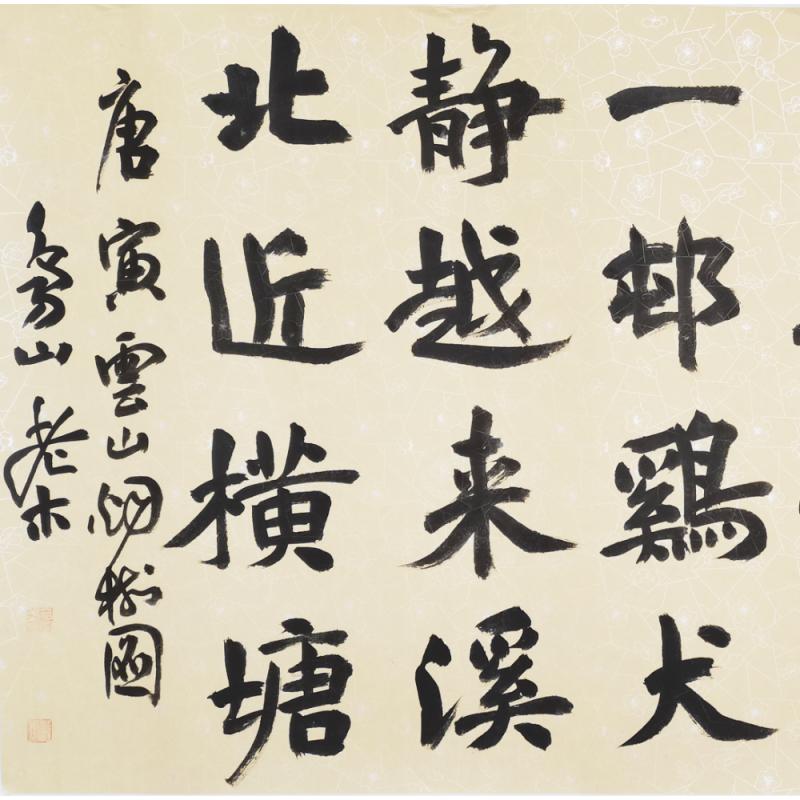 一邨鷄犬
静越来溪
北近橫塘
唐寅雲山烟樹圖
山老木